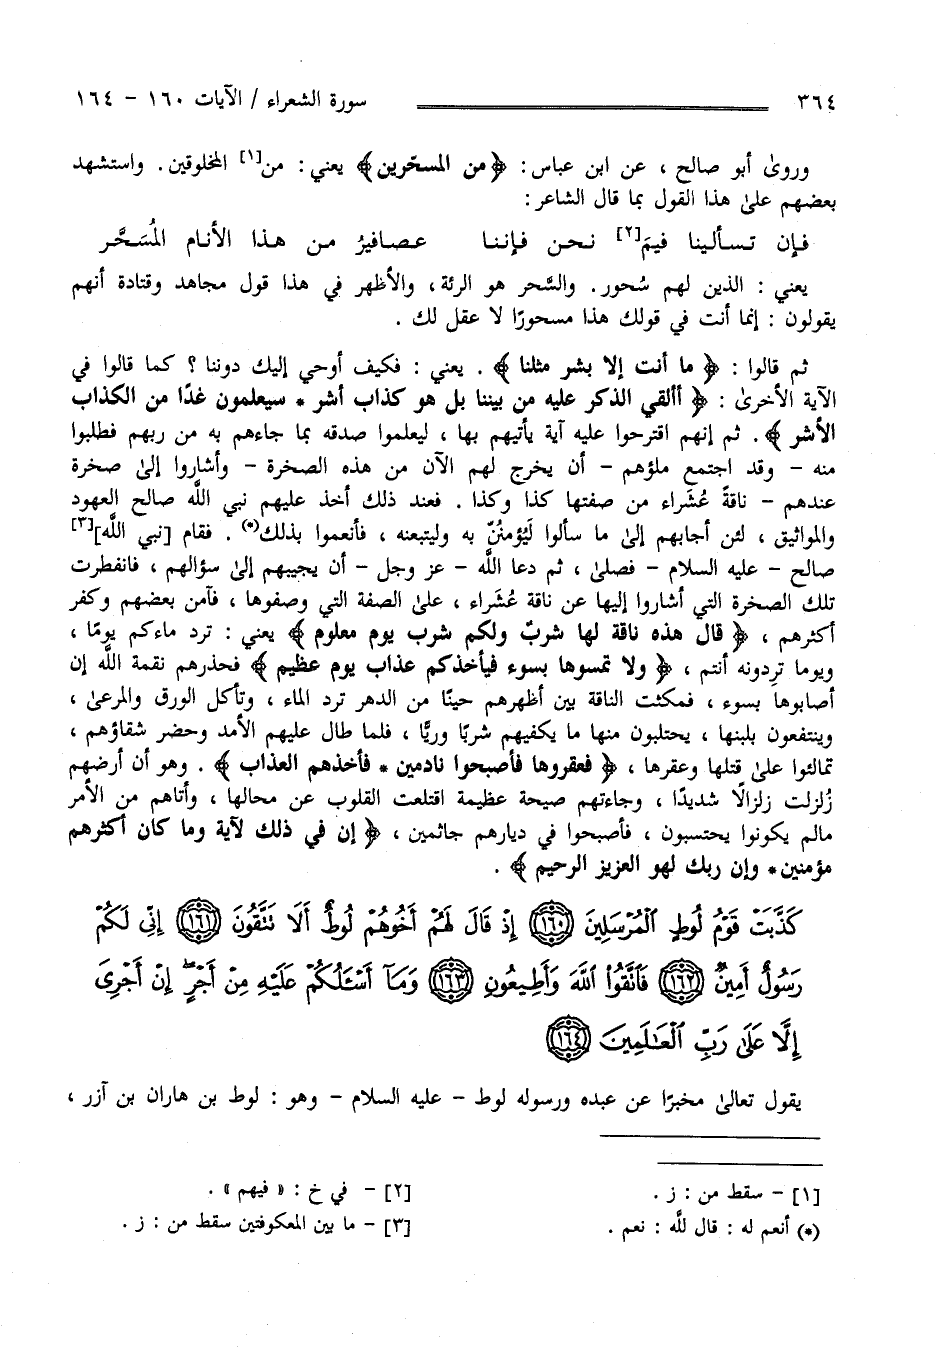 ٣٦٤ سورة الشعراء / الآيات ١٦٠ - ١٦٤
وروىٰ أبو صالح ، عن ابن عباس : ﴿من المسحّرين﴾ يعني : من[١] المخلوقين. واستشهد
بعضهم علىٰ هذا القول بما قال الشاعر :
فإن تسألينا فيمَ[٢] نحن فإننا عصافيرُ من هذا الأنام المُسَحَّر
يعني : الذين لهم سُحور. والسَّحر هو الرئة، والأظهر في هذا قول مجاهد وقتادة أنهم
يقولون : إنما أنت في قولك هذا مسحورًا لا عقل لك .
ثم قالوا : ﴿ ما أنت إلا بشر مثلنا ﴾ . يعني : فكيف أوحي إليك دوننا ؟ كما قالوا في
الآية الأخرىٰ : ﴿ أألقي الذكر عليه من بيننا بل هو كذاب أشر * سيعلمون غدًا من الكذاب
الأشر ﴾. ثم إنهم اقترحوا عليه آية يأتيهم بها ، ليعلموا صدقه بما جاءهم به من ربهم فطلبوا
منه - وقد اجتمع ملؤهم - أن يخرج لهم الآن من هذه الصخرة - وأشاروا إلىٰ صخرة
عندهم - ناقةً عُشَراء من صفتها كذا وكذا . فعند ذلك أخذ عليهم نبي اللَّه صالح العهود
والمواثيق ، لئن أجابهم إلىٰ ما سألوا لَيُؤمنُنّ به وليتبعنه ، فأنعموا بذلك(*) . فقام [نبي اللَّه][٣]
صالح - عليه السلام - فصلىٰ ، ثم دعا اللَّه - عز وجل - أن يجيبهم إلىٰ سؤالهم ، فانفطرت
تلك الصخرة التي أشاروا إليها عن ناقة عُشَراء ، علىٰ الصفة التي وصفوها ، فآمن بعضهم وكفر
أكثرهم ، ﴿ قال هذه ناقة لها شربٌ ولكم شرب يوم معلوم ﴾ يعني : ترد ماءكم يومًا ،
ويوما تردونه أنتم ، ﴿ ولا تمسوها بسوء فيأخذكم عذاب يوم عظيم ﴾ فحذرهم نقمة اللَّه إن
أصابوها بسوء ، فمكثت الناقة بين أظهرهم حينًا من الدهر ترد الماء ، وتأكل الورق والمرعىٰ ،
وينتفعون بلبنها ، يحتلبون منها ما يكفيهم شربًا وريًّا ، فلما طال عليهم الأمد وحضر شقاؤهم ،
تمالئوا علىٰ قتلها وعقرها ، ﴿ فعقروها فأصبحوا نادمين * فأخذهم العذاب ﴾ . وهو أن أرضهم
زُلزلت زلزالًا شديدًا ، وجاءتهم صيحة عظيمة اقتلعت القلوب عن محالها ، وأتاهم من الأمر
مالم يكونوا يحتسبون ، فأصبحوا في ديارهم جاثمين ، ﴿ إن في ذلك لآية وما كان أكثرهم
مؤمنين* وإن ربك لهو العزيز الرحيم ﴾ .
كَذَّبَتْ قَوْمُ لُوطٍ ٱلْمُرْسَلِينَ ١٦٠ إِذْ قَالَ لَهُمْ أَخُوهُمْ لُوطٌ أَلَا تَتَّقُونَ ١٦١ إِنِّى لَكُمْ
رَسُولٌ أَمِينٌ ١٦٢ فَٱتَّقُوا۟ ٱللَّهَ وَأَطِيعُونِ ١٦٣ وَمَآ أَسْـَٔلُكُمْ عَلَيْهِ مِنْ أَجْرٍ إِنْ أَجْرِىَ
إِلَّا عَلَىٰ رَبِّ ٱلْعَـٰلَمِينَ ١٦٤
يقول تعالىٰ مخبرًا عن عبده ورسوله لوط - عليه السلام - وهو : لوط بن هاران بن آزر ،
[١] - سقط من : ز .
[٢] - في خ : « فيهم » .
(*) أنعم له : قال للَّه : نعم .
[٣] - ما بين المعكوفتين سقط من : ز .